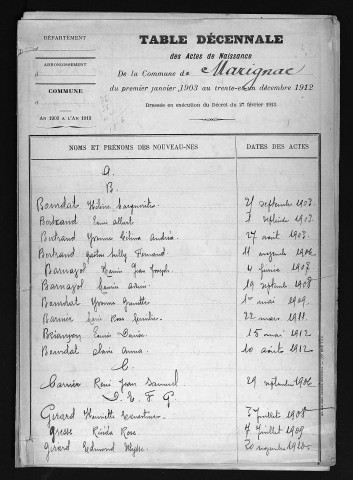 DÉPARTEMENT
ARRONDISSEMENT
COMMUNE
AN 1903 A L'AN 1912
TABLE DÉCENNALE
des Actes de Naissance
De la Commune de Marignac
du premier janvier 1903 au trente-et-un décembre 1912
Dressée en exécution du Décret du 27 février 1913
NOMS ET PRÉNOMS DES NOUVEAU-NÉS DATES DES ACTES
A.
B.
Bomdat Hélène Marguerite 21 septembre 1903
Bertrand Albert 1903
Bertrand Yvonne Célina Andréa 27 août 1903
Bertrand Gaston Fernand 11 1906
Barnazol Jean Joseph 4 1907
Barnazol 19 septembre 1908
Bomdat Yvonne 1er mai 1909
Barnier Rose 22 mars 1911
Briançon Louise 15 mai 1912
Bomdat Anna 10 août 1912
C.
Carrière René Jean Samuel 29 septembre 1906
D. E. F. G.
Girard Henriette 3 juillet 1908
Grosse Rose 7 juillet 1909
Girard Edmond 20